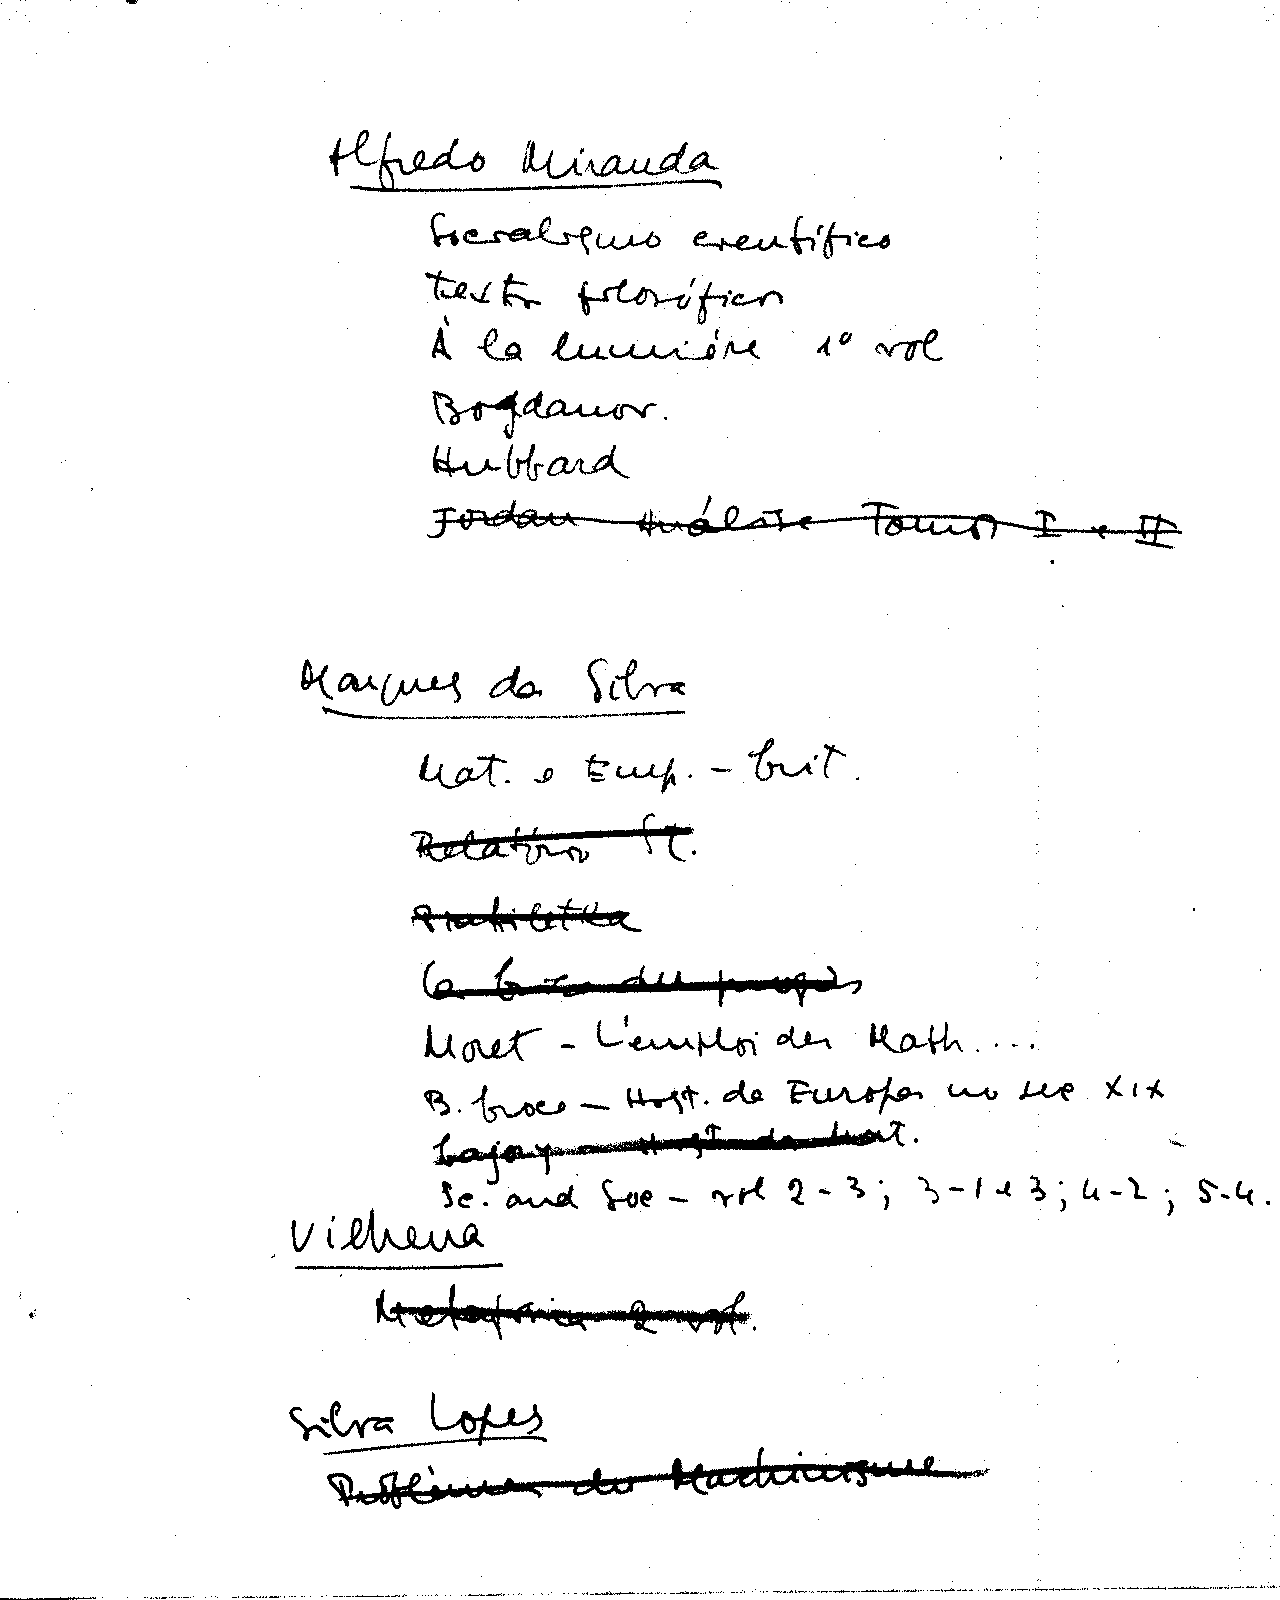 Alfredo Miranda
Socialismo científico
Textos filosóficos
À la lumière 1º vol
Bogdanov.
Hubbard
Jordan Análise Tomos I e II
Marques da Silva
Mat. e Emp. - Crit.
Relatório St.
Piatiletka
La du progrès
Moret - L'emploi des Math....
B. Croce - Hist. da Europa no sec XIX
Hist da Mat.
Sc. and Soc - vol 2-3; 3-1 e 3; 4-2; 5-4.
Vilhena
2 vol.
Silva Lopes
Problèmes du Machinisme